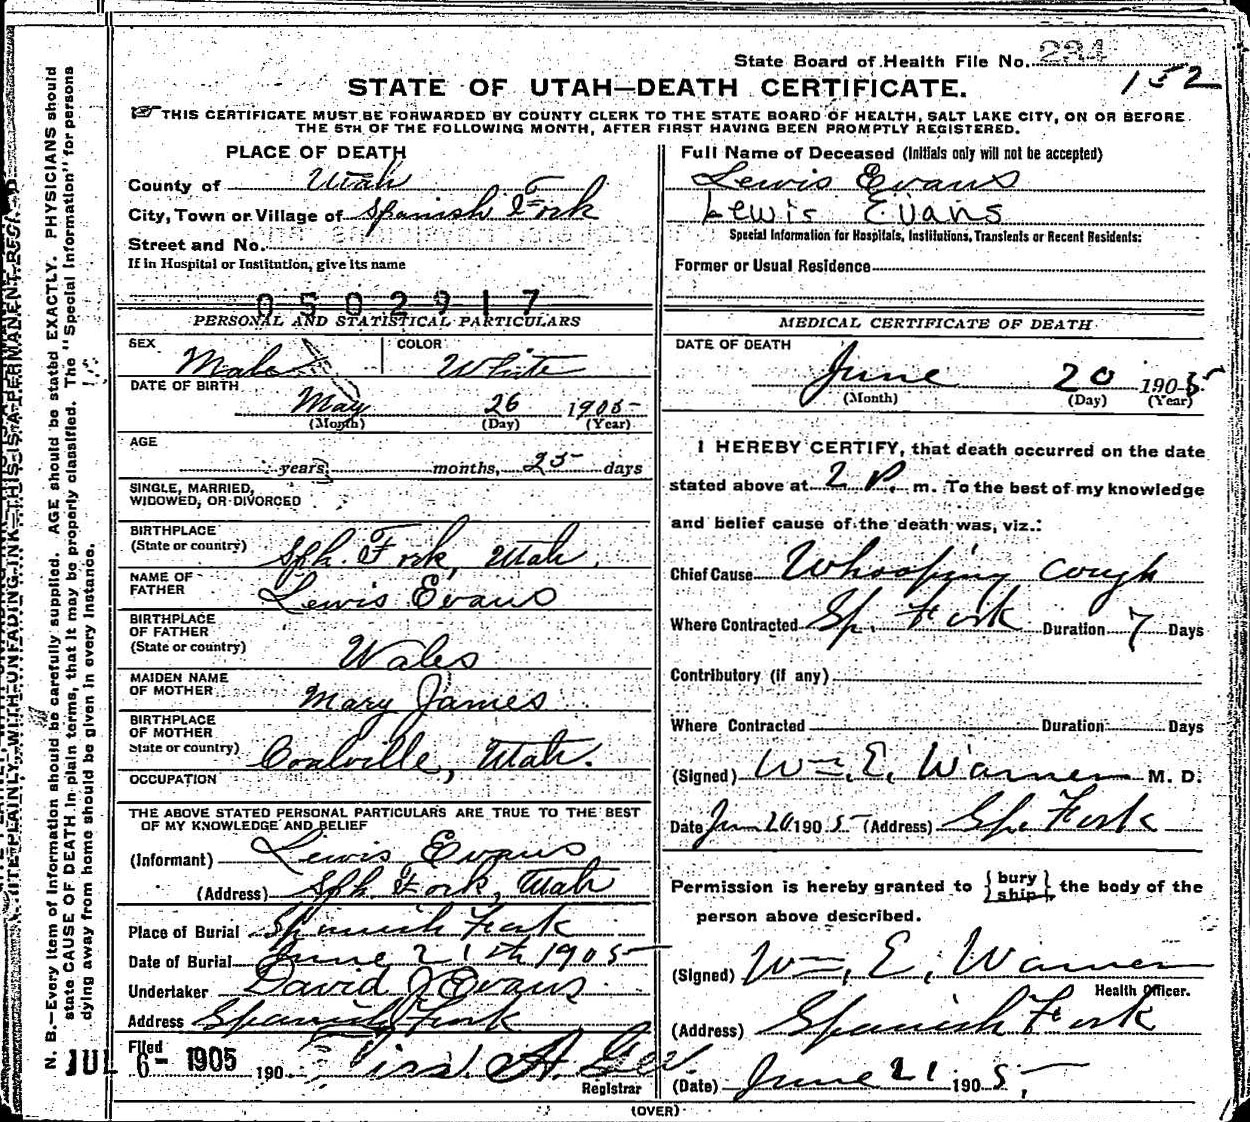 State Board of Health File No. 234
152
STATE OF UTAH—DEATH CERTIFICATE.
THIS CERTIFICATE MUST BE FORWARDED BY COUNTY CLERK TO THE STATE BOARD OF HEALTH, SALT LAKE CITY, ON OR BEFORE
THE 5TH OF THE FOLLOWING MONTH, AFTER FIRST HAVING BEEN PROMPTLY REGISTERED.
PLACE OF DEATH
County of Utah
City, Town or Village of Spanish Fork
Street and No.
If in Hospital or Institution, give its name
0502917
PERSONAL AND STATISTICAL PARTICULARS
SEX Male COLOR White
DATE OF BIRTH
May 26 1905
(Month) (Day) (Year)
AGE
years, months, 25 days
SINGLE, MARRIED,
WIDOWED, OR DIVORCED
BIRTHPLACE
(State or country) Sph. Fork, Utah.
NAME OF
FATHER Lewis Evans
BIRTHPLACE
OF FATHER
(State or country) Wales
MAIDEN NAME
OF MOTHER Mary James
BIRTHPLACE
OF MOTHER
State or country) Coalville, Utah.
OCCUPATION
THE ABOVE STATED PERSONAL PARTICULARS ARE TRUE TO THE BEST
OF MY KNOWLEDGE AND BELIEF
(Informant) Lewis Evans
(Address) Sph. Fork, Utah
Place of Burial Spanish Fork
Date of Burial June 21th 1905
Undertaker David J Evans
Address Spanish Fork
Filed
JUL 6- 1905 190
A.
Registrar
Full Name of Deceased (Initials only will not be accepted)
Lewis Evans
Lewis Evans
Special Information for Hospitals, Institutions, Transients or Recent Residents:
Former or Usual Residence
MEDICAL CERTIFICATE OF DEATH
DATE OF DEATH
June 20 1905
(Month) (Day) (Year)
I HEREBY CERTIFY, that death occurred on the date
stated above at 2 P. m. To the best of my knowledge
and belief cause of the death was, viz.:
Chief Cause Whooping cough
Where Contracted Sp. Fork Duration 7 Days
Contributory (if any)
Where Contracted Duration Days
(Signed) Wm. E. Warner M. D.
Date Jun 20 1905 (Address) Sp. Fork
Permission is hereby granted to {bury
ship} the body of the
person above described.
(Signed) Wm. E. Warner
Health Officer.
(Address) Spanish Fork
(Date) June 21 1905,
(OVER)
N. B.—Every item of information should be carefully supplied. AGE should be stated EXACTLY. PHYSICIANS should
state CAUSE OF DEATH in plain terms, that it may be properly classified. The "Special Information" for persons
dying away from home should be given in every instance.
WRITE PLAINLY, WITH UNFADING INK—THIS IS A PERMANENT